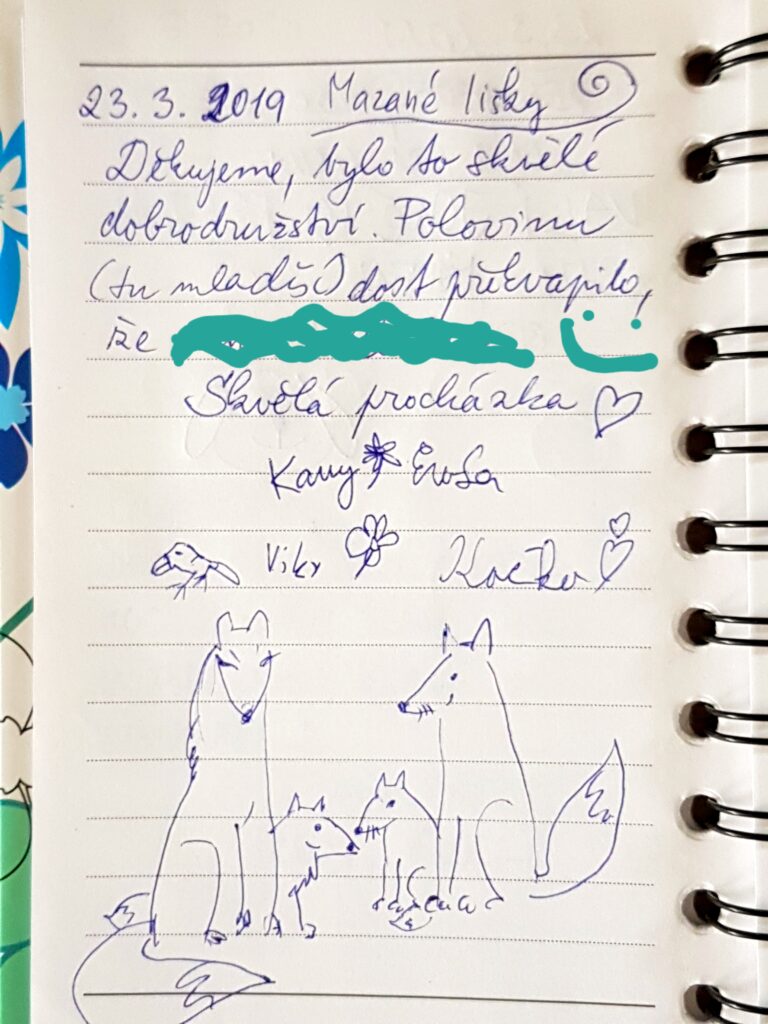 23. 3. 2019 Mazané lišky
Děkujeme, bylo to skvělé
dobrodružství. Polovinu
(tu mladší) dost překvapilo,
že
Skvělá procházka
Kamy Evša
Viky Kočka